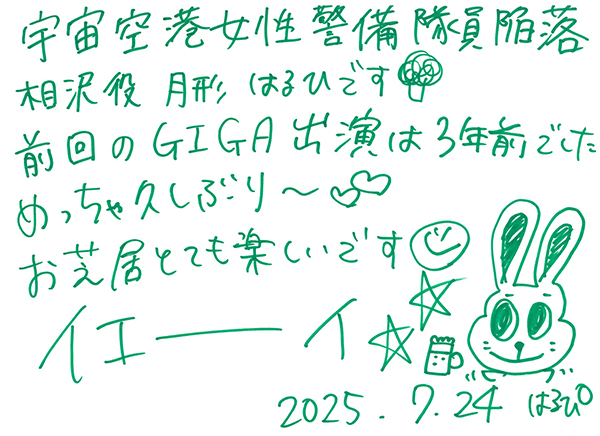 宇宙空港女性警備隊員陥落
相沢役 月形 はるひです
前回のGIGA出演は3年前でした
めっちゃ久しぶり〜
お芝居とても楽しいです
イエーーイ
2025.7.24 はるぴ